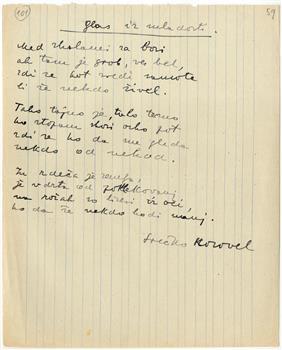 101
59
glas iz mladosti.
Med skalami za Bori
ah tam je grob, ves bel,
zdi se kot sredi samote
bi še nekdo živel.
Tako tajno je, tako temno
ko stopam skoz oko pot
zdi se ko da me gleda
nekdo od nekod.
In rdeča je zemlja,
je v drta od
na rokah so
ko da že nekdo hodi
Srečko Kosovel